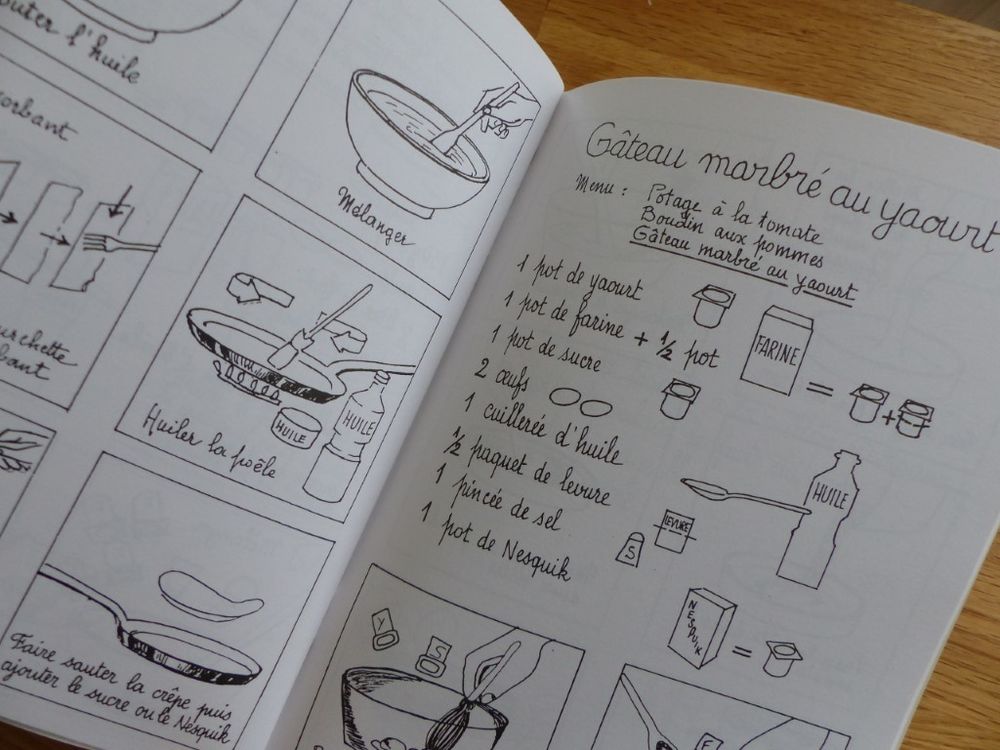 outer l'huile
Mélanger
orbant
Huiler la poêle
HUILE
HUILE
urchette
bant
Faire sauter la crêpe puis
ajouter le sucre ou le Nesquik
Gâteau marbré au yaourt
Menu : Potage à la tomate
Boudin aux pommes
Gâteau marbré au yaourt
1 pot de yaourt
1 pot de farine + 1/2 pot
FARINE
=
+
1 pot de sucre
2 œufs
1 cuillerée d'huile
HUILE
1/2 paquet de levure
LEVURE
1 pincée de sel
S
1 pot de Nesquik
NESQUIK
=
Y
S
F